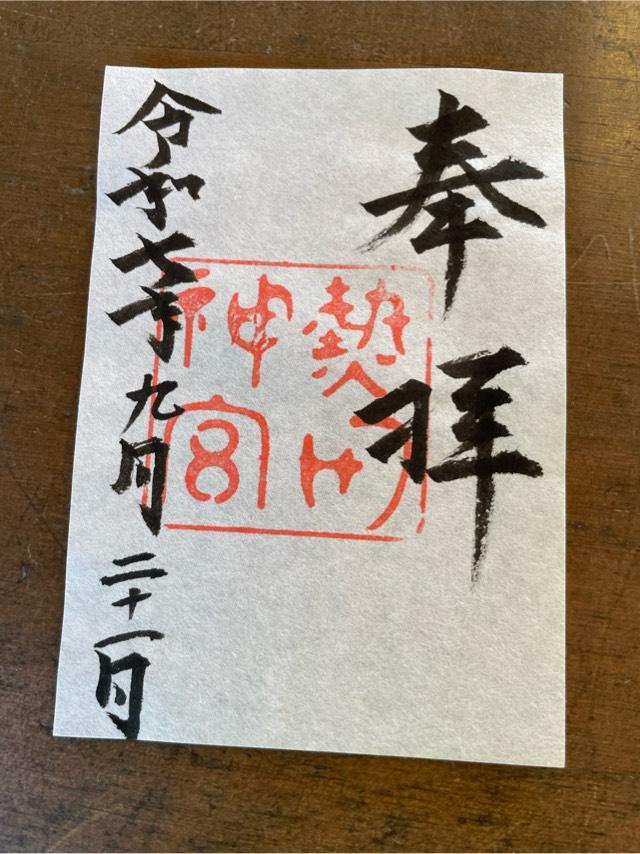 奉拝
熱田
神宮
令和七年九月二十一日